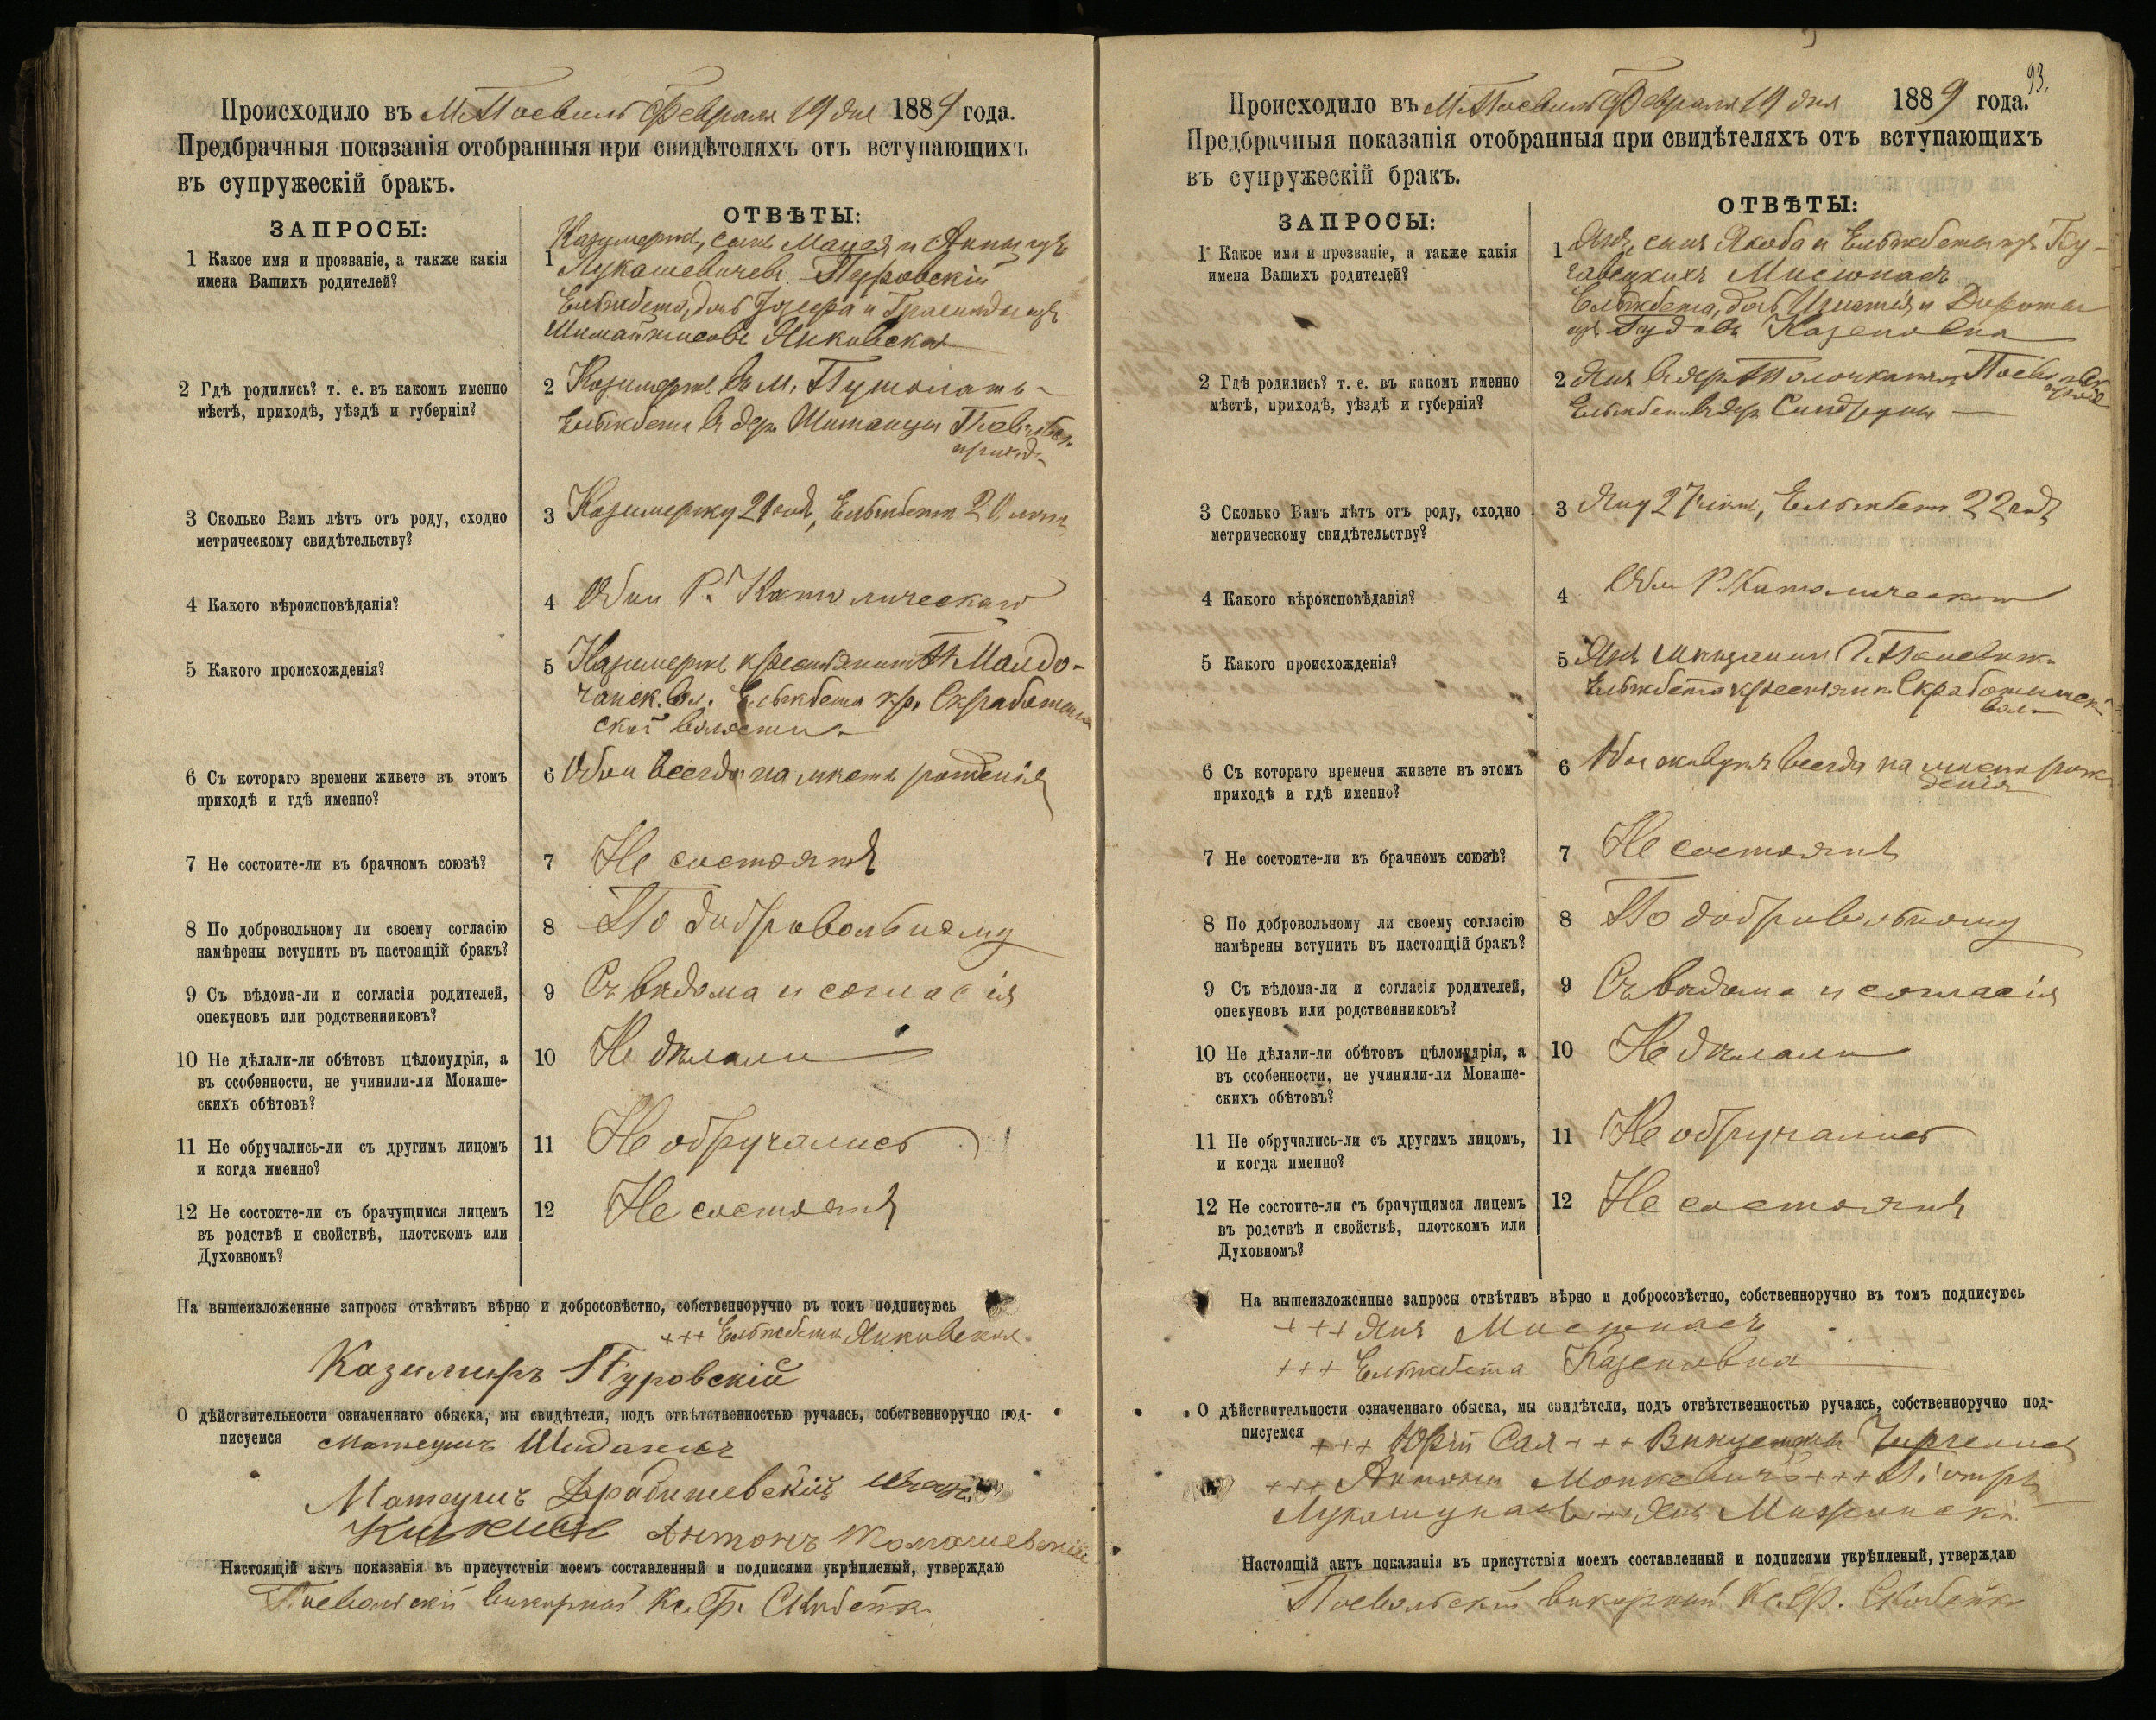 Происходило въ М. Поевилѣ Февраля 19 дня 1889 года.
Предбрачныя показанія отобранныя при свидѣтеляхъ отъ вступающихъ
въ супружескій бракъ.
ЗАПРОСЫ:
ОТВѢТЫ:
1 Какое имя и прозваніе, а также какія
имена Вашихъ родителей?
1 Казимержъ, сынъ Мацея и Анны изъ
Лукашевичевъ Пуровскій
Ельжбета, дочь Іозефа и
Янковская
2 Гдѣ родились? т. е. въ какомъ именно
мѣстѣ, приходѣ, уѣздѣ и губерніи?
2 Казимержъ въ м. Пушолаты
Ельжбета въ дер.
приход.
3 Сколько Вамъ лѣтъ отъ роду, сходно
метрическому свидѣтельству?
3 Казимержу 21 годъ, Ельжбетѣ 20 лѣтъ
4 Какого вѣроисповѣданія?
4 Оба Р. Католическаго
5 Какого происхожденія?
5 Казимержъ крестьянинъ
вол. Ельжбета кр. Скработишк
ской волости
6 Съ котораго времени живете въ этомъ
приходѣ и гдѣ именно?
6 Оба всегда на мѣстѣ рожденія
7 Не состоите-ли въ брачномъ союзѣ?
7 Не состоятъ
8 По добровольному ли своему согласію
намѣрены вступить въ настоящій бракъ?
8 По добровольному
9 Съ вѣдома-ли и согласія родителей,
опекуновъ или родственниковъ?
9 Съ вѣдома и согласія
10 Не дѣлали-ли обѣтовъ цѣломудрія, а
въ особенности, не учинили-ли Монаше-
скихъ обѣтовъ?
10 Не дѣлали
11 Не обручались-ли съ другимъ лицомъ
и когда именно?
11 Не обручались
12 Не состоите-ли съ брачущимся лицемъ
въ родствѣ и свойствѣ, плотскомъ или
Духовномъ?
12 Не состоятъ
На вышеизложенные запросы отвѣтивъ вѣрно и добросовѣстно, собственноручно въ томъ подписуюсь
+++ Ельжбета Янковская
Казимиръ Пуровскій
О дѣйствительности означеннаго обыска, мы свидѣтели, подъ отвѣтственностью ручаясь, собственноручно под-
писуемся Матеушъ
Матеушъ
Антонъ
Настоящій актъ показанія въ присутствіи моемъ составленный и подписями укрѣпленый, утверждаю
Поевольскій викарный Кс. Ф. Скобейко
93.
Происходило въ М. Поевилѣ Февраля 19 дня 1889 года.
Предбрачныя показанія отобранныя при свидѣтеляхъ отъ вступающихъ
въ супружескій бракъ.
ЗАПРОСЫ:
ОТВѢТЫ:
1 Какое имя и прозваніе, а также какія
имена Вашихъ родителей?
1 Янъ, сынъ Якоба и Ельжбеты изъ
Мисюнасъ
Ельжбета, дочь Игнатія и Дороты
изъ Гудовъ Казеновна
2 Гдѣ родились? т. е. въ какомъ именно
мѣстѣ, приходѣ, уѣздѣ и губерніи?
2 Янъ въ дер.
Ельжбета въ дер.
3 Сколько Вамъ лѣтъ отъ роду, сходно
метрическому свидѣтельству?
3 Яну 27 лѣтъ, Ельжбетѣ 22 года
4 Какого вѣроисповѣданія?
4 Оба Р Католическаго
5 Какого происхожденія?
5 Янъ мѣщанинъ
Ельжбета крестьянка
вол.
6 Съ котораго времени живете въ этомъ
приходѣ и гдѣ именно?
6 Оба живутъ всегда на мѣстѣ рож-
денія
7 Не состоите-ли въ брачномъ союзѣ?
7 Не состоятъ
8 По добровольному ли своему согласію
намѣрены вступить въ настоящій бракъ?
8 По добровольному
9 Съ вѣдома-ли и согласія родителей,
опекуновъ или родственниковъ?
9 Съ вѣдома и согласія
10 Не дѣлали-ли обѣтовъ цѣломудрія, а
въ особенности, не учинили-ли Монаше-
скихъ обѣтовъ?
10 Не дѣлали
11 Не обручались-ли съ другимъ лицомъ,
и когда именно?
11 Не обручались
12 Не состоите-ли съ брачущимся лицемъ
въ родствѣ и свойствѣ, плотскомъ или
Духовномъ?
12 Не состоятъ
На вышеизложенные запросы отвѣтивъ вѣрно и добросовѣстно, собственноручно въ томъ подписуюсь
+++ Янъ Мисюнасъ
+++ Ельжбета Казеновна
О дѣйствительности означеннаго обыска, мы свидѣтели, подъ отвѣтственностью ручаясь, собственноручно под-
писуемся +++ Юрій +++ Винцентъ
+++ Антонъ Монкевичъ +++ Піотръ
+++ Янъ
Настоящій актъ показанія въ присутствіи моемъ составленный и подписями укрѣпленый, утверждаю
Поевольскій викарный Кс. Ф. Скобейко